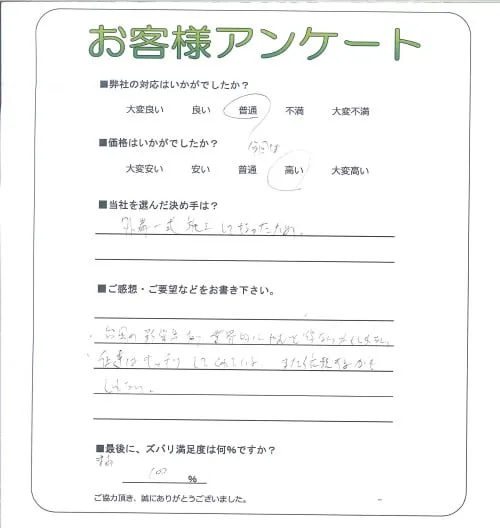 お客様アンケート
■弊社の対応はいかがでしたか?
大変良い 良い 普通 不満 大変不満
■価格はいかがでしたか? 今回は
大変安い 安い 普通 高い 大変高い
■当社を選んだ決め手は?
外壁一式施工してもらったため。
■ご感想・ご要望などをお書き下さい。
台風の 業界的に
仕事は してくれている また依頼するかも
しれない。
■最後に、ズバリ満足度は何%ですか?
100 %
ご協力頂き、誠にありがとうございました。